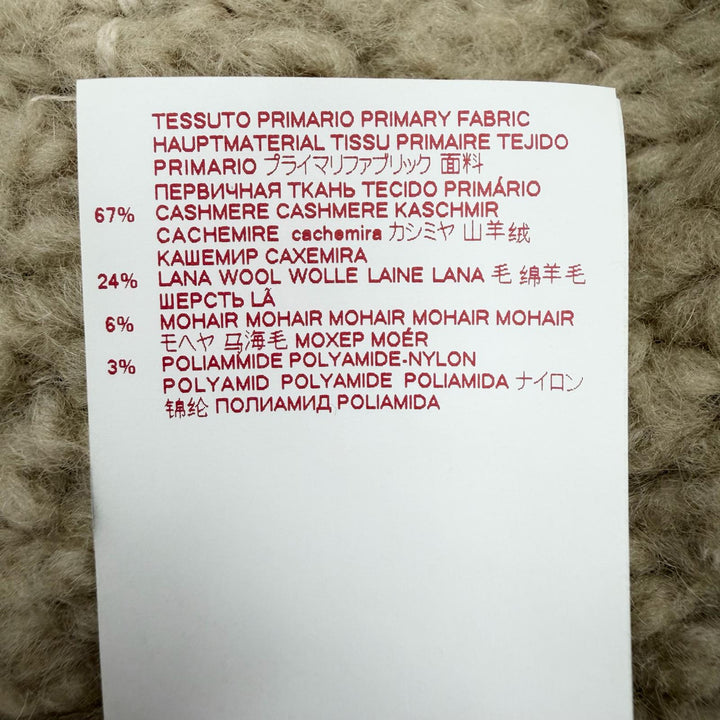 TESSUTO PRIMARIO PRIMARY FABRIC
HAUPTMATERIAL TISSU PRIMAIRE TEJIDO
PRIMARIO プライマリファブリック 面料
ПЕРВИЧНАЯ ТКАНЬ TECIDO PRIMÁRIO
67% CASHMERE CASHMERE KASCHMIR
CACHEMIRE cachemira カシミヤ 山羊绒
КАШЕМИР CAXEMIRA
24% LANA WOOL WOLLE LAINE LANA 毛 绵羊毛
ШЕРСТЬ LÃ
6% MOHAIR MOHAIR MOHAIR MOHAIR MOHAIR
モヘヤ 马海毛 МОХЕР MOÉR
3% POLIAMMIDE POLYAMIDE-NYLON
POLYAMID POLYAMIDE POLIAMIDA ナイロン
锦纶 ПОЛИАМИД POLIAMIDA